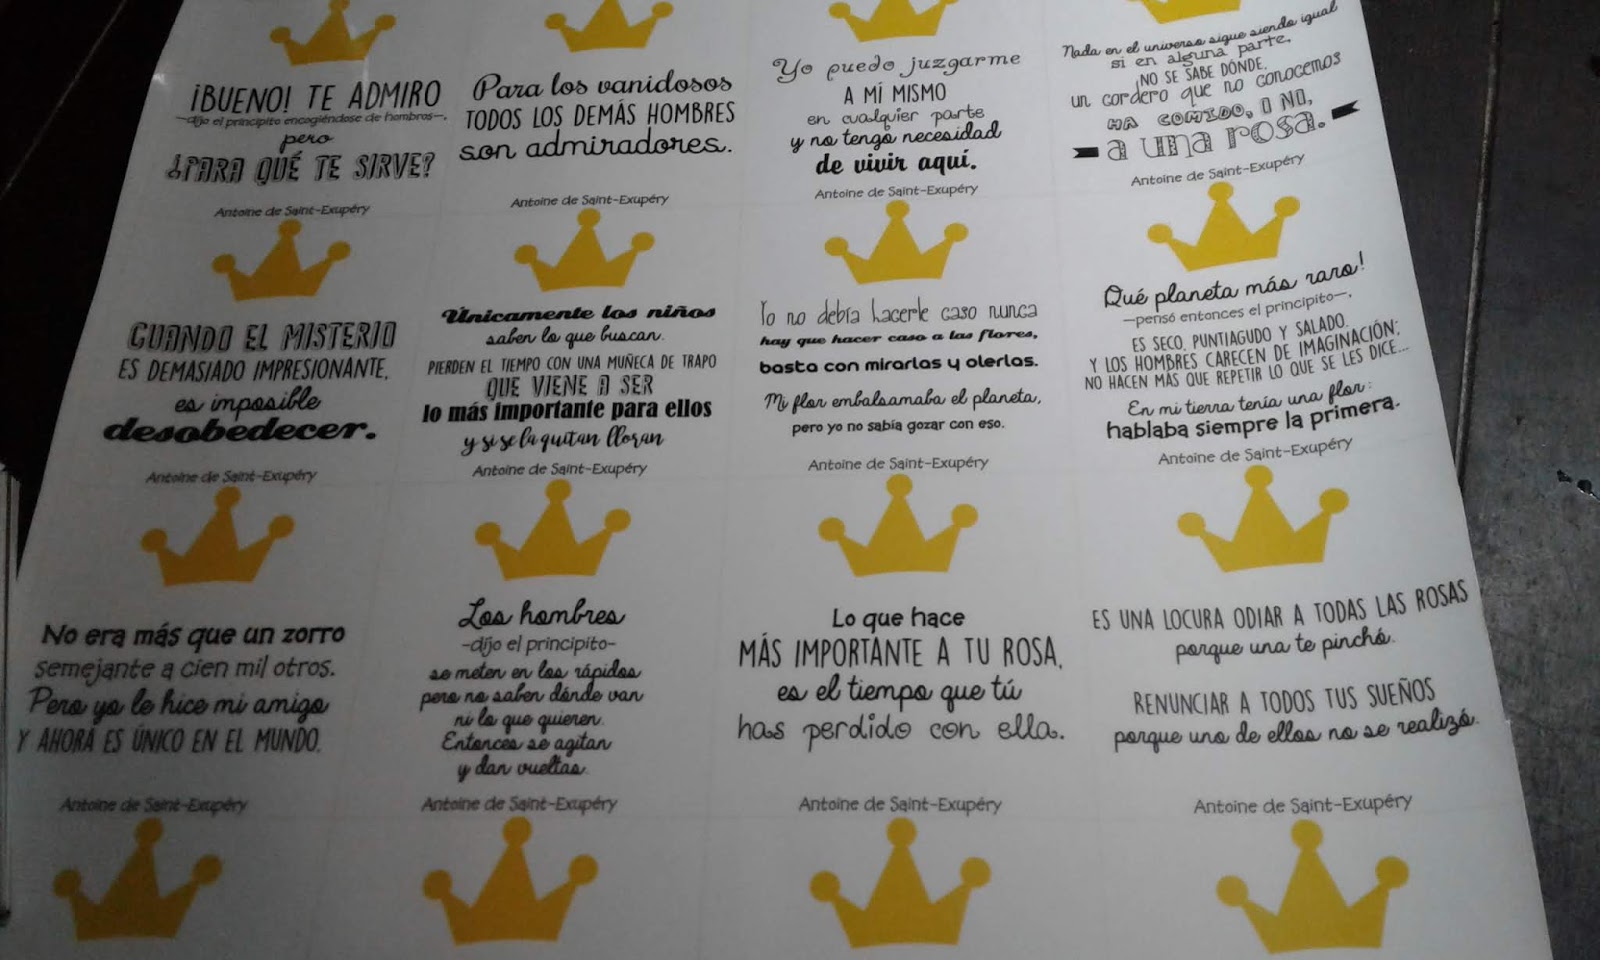 ¡BUENO! TE ADMIRO
—dijo el principito encogiéndose de hombros—,
pero
¿PARA QUÉ TE SIRVE?
Antoine de Saint-Exupéry
Para los vanidosos
TODOS LOS DEMÁS HOMBRES
son admiradores.
Antoine de Saint-Exupéry
Yo puedo juzgarme
A MÍ MISMO
en cualquier parte
y no tengo necesidad
de vivir aquí.
Antoine de Saint-Exupéry
Nada en el universo sigue siendo igual
si en alguna parte,
¡NO SE SABE DÓNDE,
un cordero que no conocemos
HA COMIDO, O NO,
a una rosa.
Antoine de Saint-Exupéry
CUANDO EL MISTERIO
ES DEMASIADO IMPRESIONANTE,
es imposible
desobedecer.
Antoine de Saint-Exupéry
Únicamente los niños
saben lo que buscan.
PIERDEN EL TIEMPO CON UNA MUÑECA DE TRAPO
QUE VIENE A SER
lo más importante para ellos
y si se la quitan lloran
Antoine de Saint-Exupéry
Yo no debía hacerle caso nunca
hay que hacer caso a las flores,
basta con mirarlas y olerlas.
Mi flor embalsamaba el planeta,
pero yo no sabía gozar con eso.
Antoine de Saint-Exupéry
Qué planeta más raro!
—pensó entonces el principito—,
ES SECO, PUNTIAGUDO Y SALADO.
Y LOS HOMBRES CARECEN DE IMAGINACIÓN;
NO HACEN MÁS QUE REPETIR LO QUE SE LES DICE...
En mi tierra tenía una flor:
hablaba siempre la primera.
Antoine de Saint-Exupéry
No era más que un zorro
semejante a cien mil otros.
Pero yo le hice mi amigo
Y AHORA ES ÚNICO EN EL MUNDO.
Antoine de Saint-Exupéry
Los hombres
-dijo el principito-
se meten en los rápidos
pero no saben dónde van
ni lo que quieren.
Entonces se agitan
y dan vueltas.
Antoine de Saint-Exupéry
Lo que hace
MÁS IMPORTANTE A TU ROSA,
es el tiempo que tú
has perdido con ella.
Antoine de Saint-Exupéry
ES UNA LOCURA ODIAR A TODAS LAS ROSAS
porque una te pinchó.
RENUNCIAR A TODOS TUS SUEÑOS
porque uno de ellos no se realizó.
Antoine de Saint-Exupéry